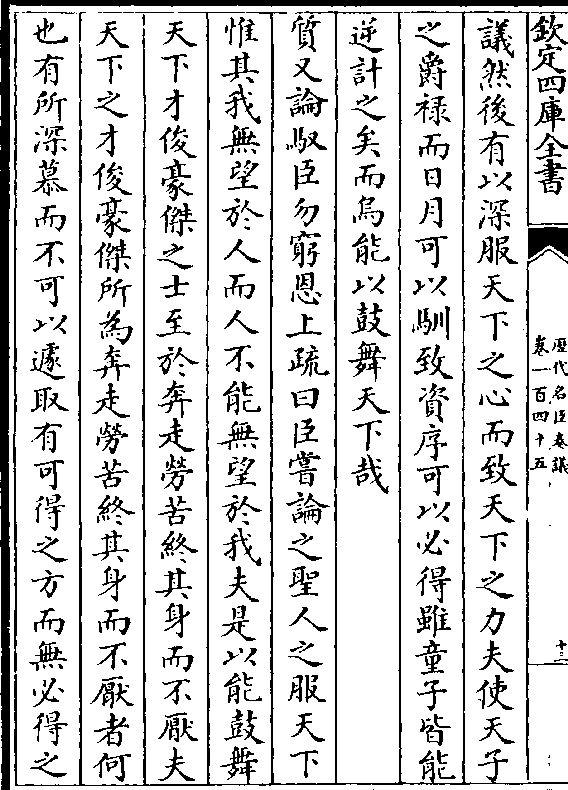 欽定四庫全書
歷代名臣奏議
卷一百四十五
十三
議然後有以深服天下之心而致天下之力夫使天子
之爵祿而日月可以馴致資序可以必得雖童子皆能
逆計之矣而烏能以鼓舞天下哉
質又論馭臣勿窮恩上疏曰臣嘗論之聖人之服天下
惟其我無望於人而人不能無望於我夫是以能鼓舞
天下才俊豪傑之士至於奔走勞苦終其身而不厭夫
天下之才俊豪傑所為奔走勞苦終其身而不厭者何
也有所深慕而不可以遽取有可得之方而無必得之